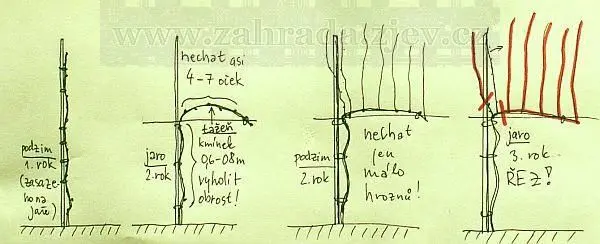 www.zahradazijev.cz
podzim
1. rok
(zasaze-
no na
jaře)
nechat asi
4-7 oček
tažeň
kmínek
0,6-0,8m
vyholit
obrost!
jaro
2. rok
podzim
2. rok
nechat
jen
málo
hroznů!
jaro
3. rok
ŘEZ!